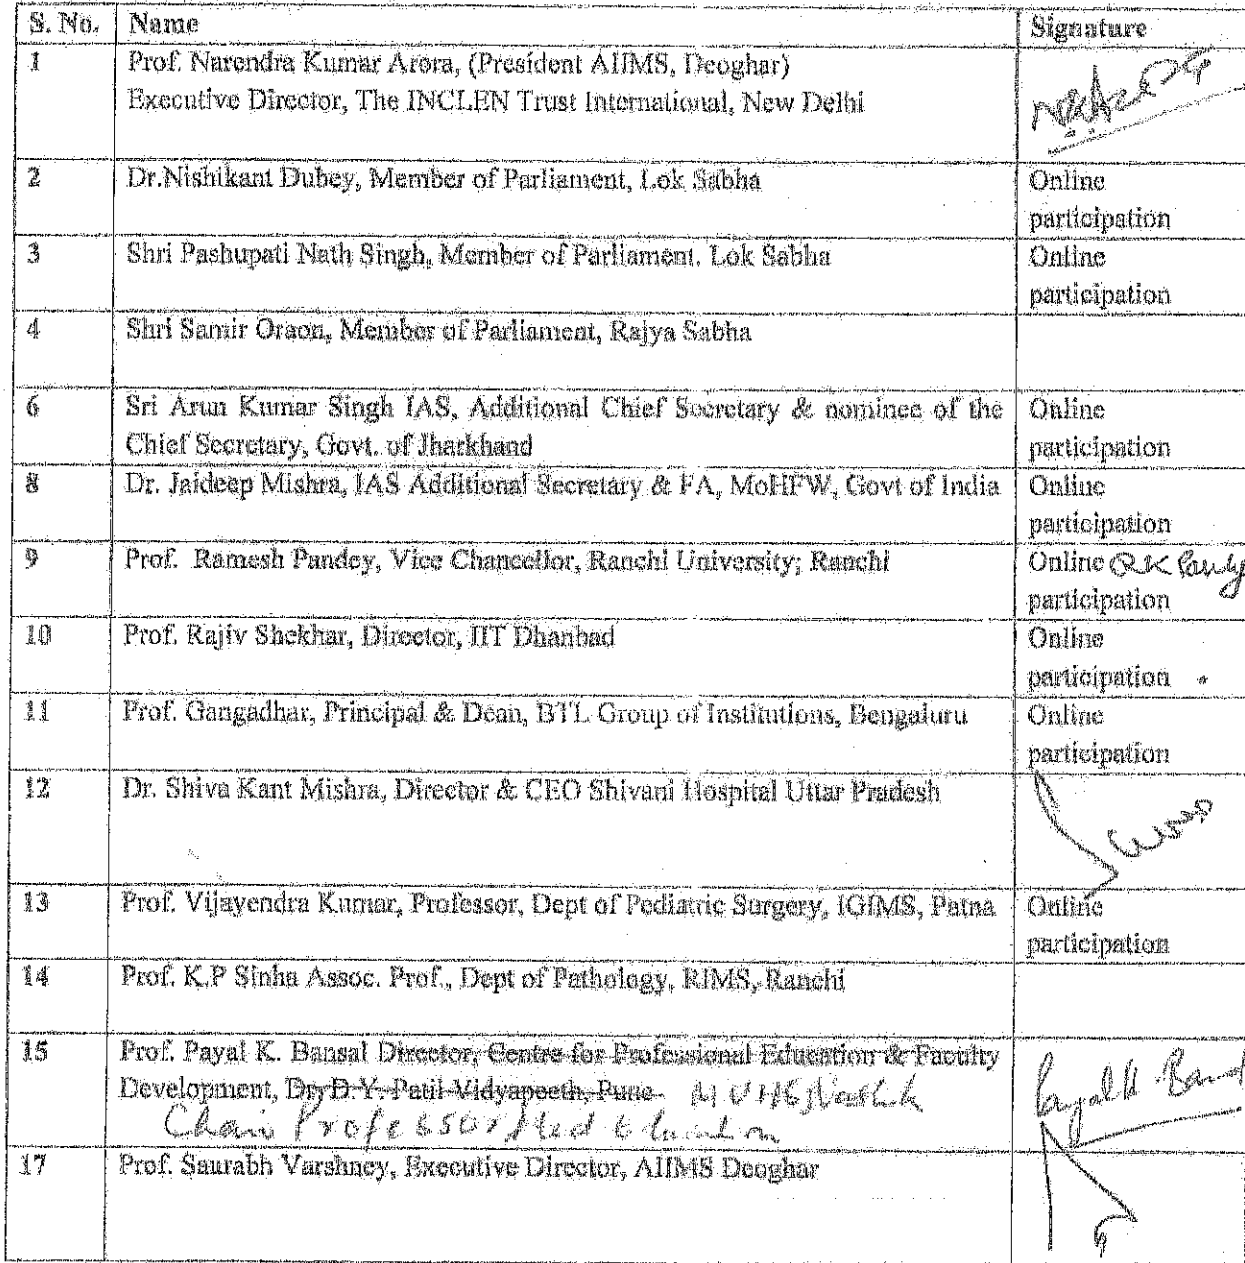 S. No. Name Signature
1 Prof. Narendra Kumar Arora, (President AIIMS, Deoghar)
Executive Director, The INCLEN Trust International, New Delhi
2 Dr.Nishikant Dubey, Member of Parliament, Lok Sabha Online
participation
3 Shri Pashupati Nath Singh, Member of Parliament. Lok Sabha Online
participation
4 Shri Samir Oraon, Member of Parliament, Rajya Sabha
6 Sri Arun Kumar Singh IAS, Additional Chief Secretary & nominee of the Online
Chief Secretary, Govt. of Jharkhand participation
8 Dr. Jaideep Mishra, IAS Additional Secretary & FA, MoHFW, Govt of India Online
participation
9 Prof. Ramesh Pandey, Vice Chancellor, Ranchi University; Ranchi Online
participation
10 Prof. Rajiv Shekhar, Director, IIT Dhanbad Online
participation
11 Prof. Gangadhar, Principal & Dean, BTL Group of Institutions, Bengaluru Online
participation
12 Dr. Shiva Kant Mishra, Director & CEO Shivani Hospital Uttar Pradesh
13 Prof. Vijayendra Kumar, Professor, Dept of Pediatric Surgery, IGIMS, Patna Online
participation
14 Prof. K.P Sinha Assoc. Prof., Dept of Pathology, RIMS, Ranchi
15 Prof. Payal K. Bansal Director, Centre for Professional Education & Faculty
Development, Dr. D.Y. Patil Vidyapeeth, Pune MUHS Nashik
Chair Professor Med
17 Prof. Saurabh Varshney, Executive Director, AIIMS Deoghar